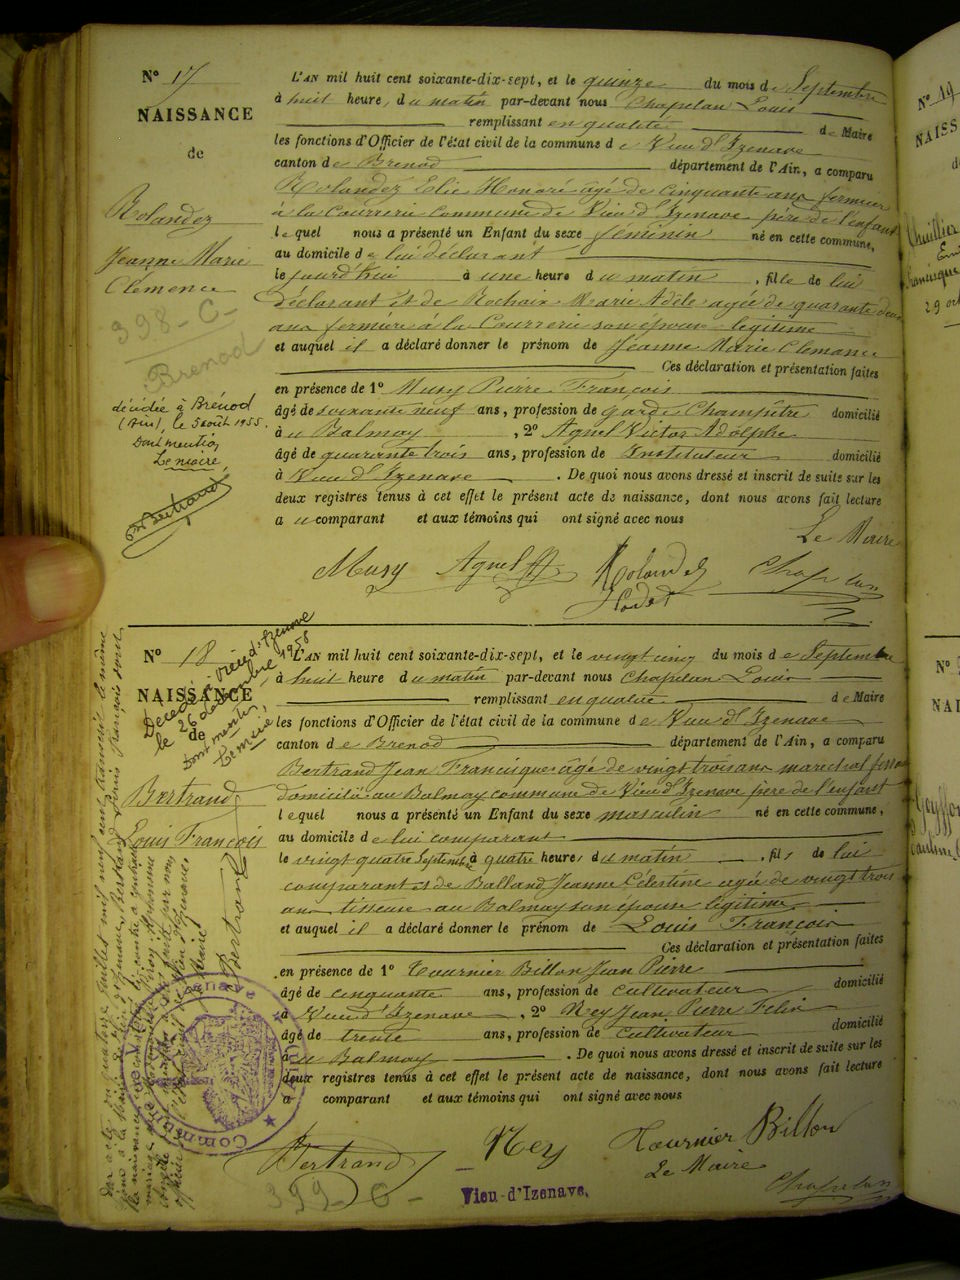 N° 17
NAISSANCE
de
Rolandez
Jeanne Marie
Clémence
398-C-
Brenod
décédée à Brénod
(Ain), le 5 août 1955.
Dont mention,
Le maire,
L'AN mil huit cent soixante-dix-sept, et le quinze du mois de Septembre
à huit heure, du matin par-devant nous Chapelan Louis
remplissant en qualité de Maire
les fonctions d'Officier de l'état civil de la commune de Vieu d'Izenave
canton de Brenod département de l'Ain, a comparu
Rolandez Elie Honoré âgé de cinquante ans fermier
à la Courrerie commune de Vieu d'Izenave père de l'enfant
lequel nous a présenté un Enfant du sexe féminin né en cette commune,
au domicile de lui déclarant
le jourd'hui à une heure du matin, fille de lui
déclarant et de Rochaix Marie Adèle agée de quarante deux
ans fermière à la Courrerie son épouse légitime
et auquel il a déclaré donner le prénom de Jeanne Marie Clemance
Ces déclaration et présentation faites
en présence de 1° Musy Pierre François
âgé de soixante neuf ans, profession de garde Champêtre domicilié
à u Balmay, 2° Agnel Victor Adolphe
âgé de quarante trois ans, profession de Instituteur domicilié
à Vieu d'Izenave. De quoi nous avons dressé et inscrit de suite sur les
deux registres tenus à cet effet le présent acte de naissance, dont nous avons fait lecture
a u comparant et aux témoins qui ont signé avec nous
Le Maire
Musy Agnel Rolandez Chapelan
N° 18
NAISSANCE
de
Bertrand
Louis François
Décédé à Vieu d'Izenave
le 26 décembre 1958
Dont mention,
Le maire,
L'AN mil huit cent soixante-dix-sept, et le vingt cinq du mois de Septembre
à huit heure du matin par-devant nous Chapelan Louis
remplissant en qualité de Maire
les fonctions d'Officier de l'état civil de la commune de Vieu d'Izenave
canton de Brenod département de l'Ain, a comparu
Bertrand Jean Francisque âgé de vingt trois ans marechal ferrant
domicilié au Balmay commune de Vieu d'Izenave père de l'enfant
lequel nous a présenté un Enfant du sexe masculin né en cette commune,
au domicile de lui comparant
le vingt quatre Septembre à quatre heure, du matin, fils de lui
comparant et de Balland Jeanne Célestine agée de vingt trois
ans tisseuse au Balmay son épouse légitime
et auquel il a déclaré donner le prénom de Louis François
Ces déclaration et présentation faites
en présence de 1° Tournier Billon Jean Pierre
âgé de cinquante ans, profession de cultivateur domicilié
à Vieu d'Izenave, 2° Rey Jean Pierre Félix
âgé de trente ans, profession de Cultivateur domicilié
à u Balmay. De quoi nous avons dressé et inscrit de suite sur les
deux registres tenus à cet effet le présent acte de naissance, dont nous avons fait lecture
a comparant et aux témoins qui ont signé avec nous
Bertrand Rey Tournier Billon
Le Maire
Chapelan
399-C-
Vieu-d'Izenave.
N° 19